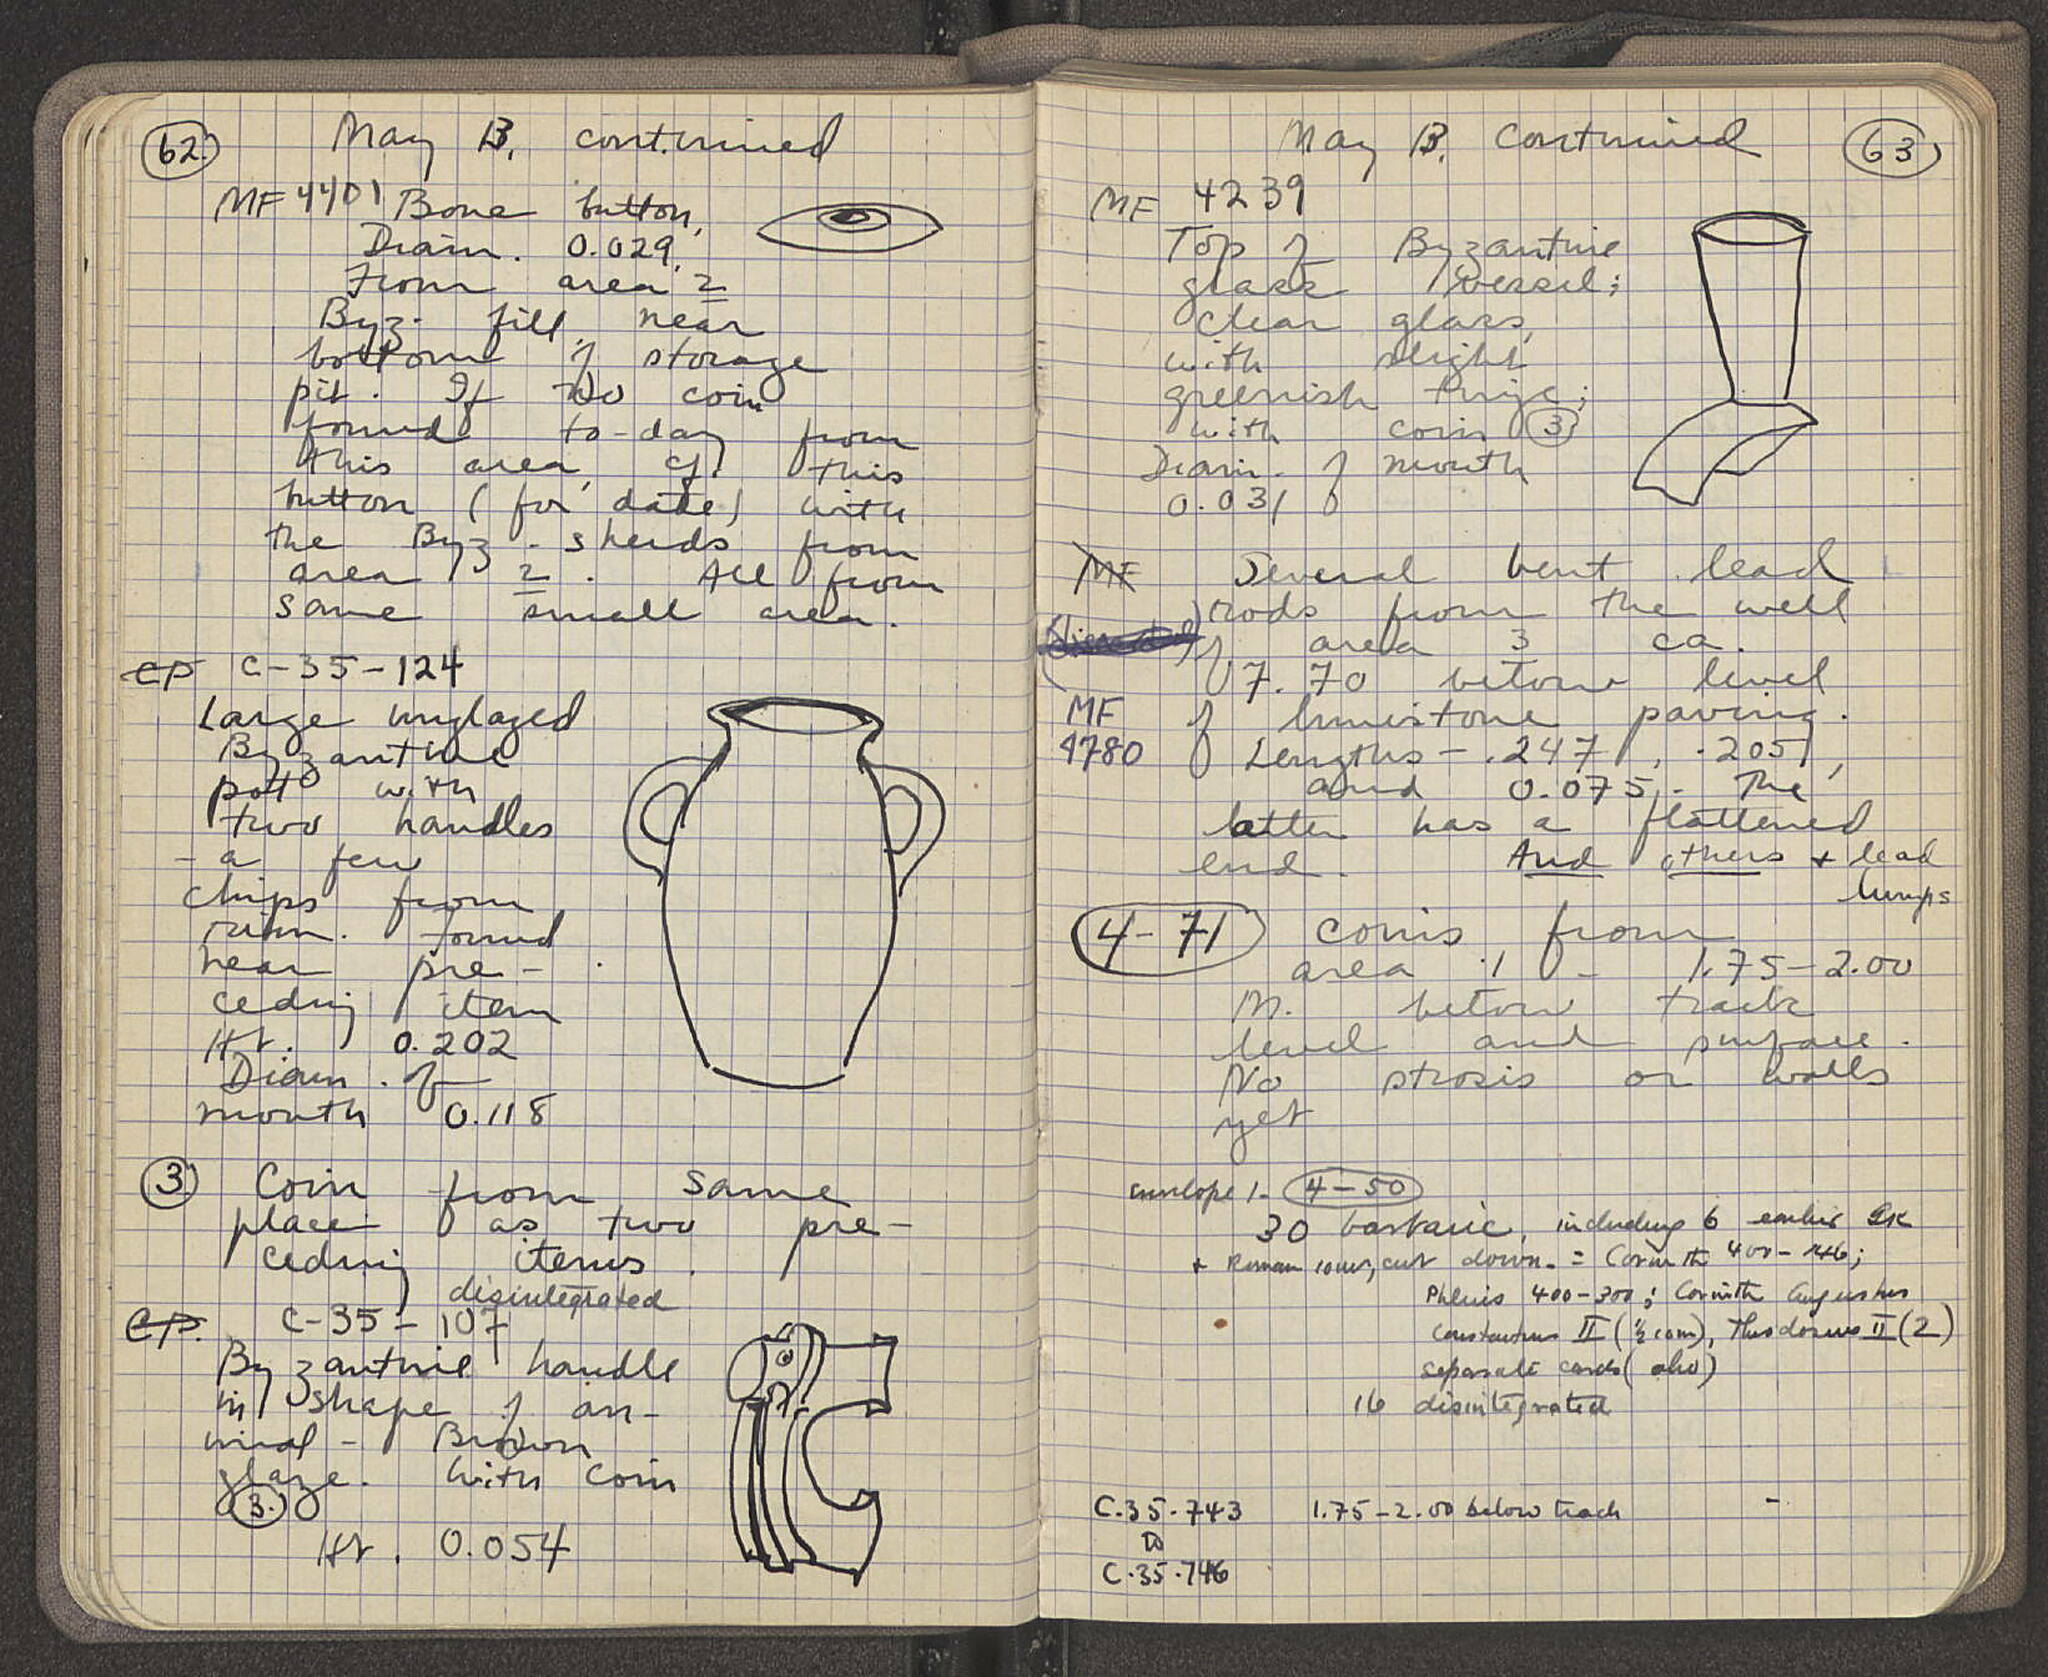 62.
May 13. continued
MF 4401 Bone button,
Diam. 0.029.
From area 2
Byz. fill near
bottom of storage
pit. If no coin
found to-day from
this area, cf. this
button (for date) with
the Byz. sherds from
area 2. All from
same small area.
CP C-35-124
Large unglazed
Byzantine
pot with
two handles
- a few
chips from
rim. Found
near pre-
ceding item
Ht. 0.202
Diam. of
mouth 0.118
3 Coin from same
place as two pre-
ceding items.
disintegrated
CP. C-35-107
Byzantine handle
in shape of an-
imal - Brown
glaze. With coin
3.
Ht. 0.054
May 13. continued
63
MF 4239
Top of Byzantine
glass vessel;
clear glass,
with slight
greenish tinge;
with coin 3
Diam. of mouth
0.031
MF Several bent lead
rods from the well
of area 3 ca.
7.70 below level
MF of limestone paving.
4780 Lengths - .247, .205,
and 0.075. The
latter has a flattened
end. And others + lead
lumps
4-71 coins from
area 1 - 1.75-2.00
M. below track
level and surface.
No strosis or walls
yet
envelope 1- 4-50
30 barbaric, including 6 earlier Gk
+ Roman coins, cut down. = Corinth 400-146;
Phlius 400-300; Corinth Augustus
Constantius II (½ coin), Theodosius II (2)
separate cards (also)
16 disintegrated
C.35.743 1.75-2.00 below track
to
C.35.746